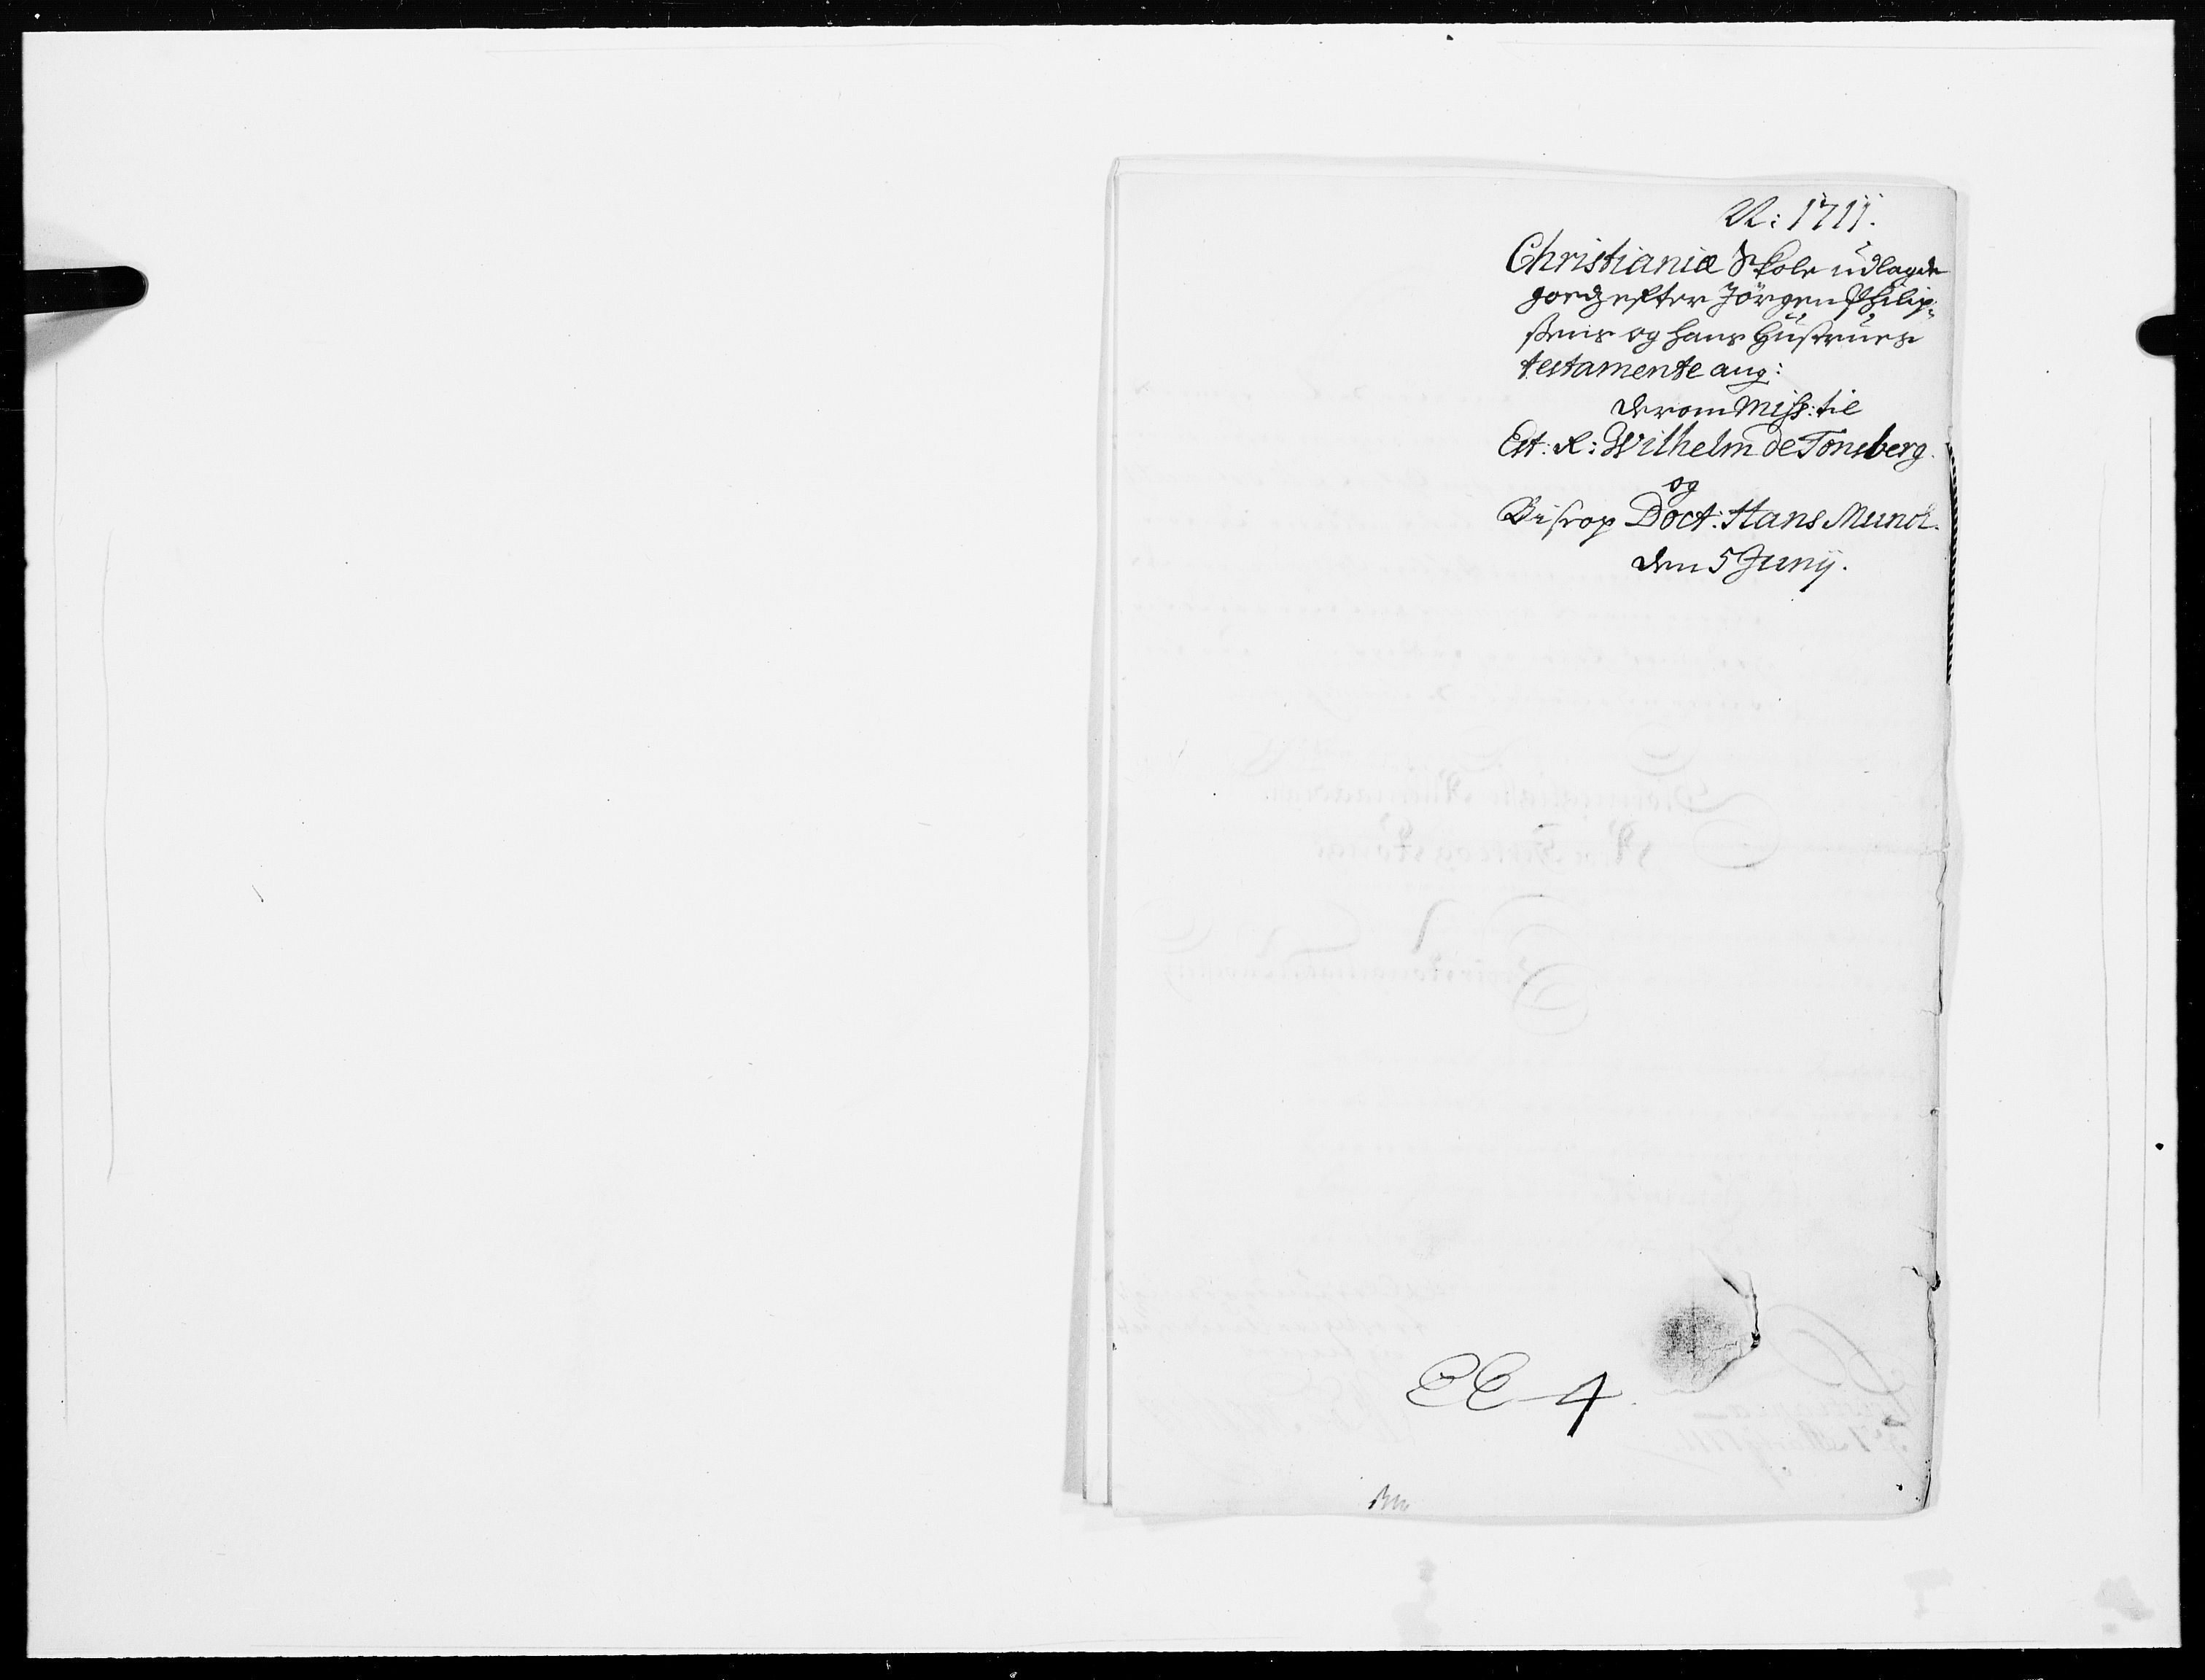 N: 1711.
Christianiæ Skole udlagde
goedz efter Jörgen Philip¬
sens og hans Hustrues
testamente ang:
derom Miss: til
Est: R: Wilhelm de Tonsberg.
og
Biscop Doct: Hans Munch.
den 5 Junij.
CC 4.